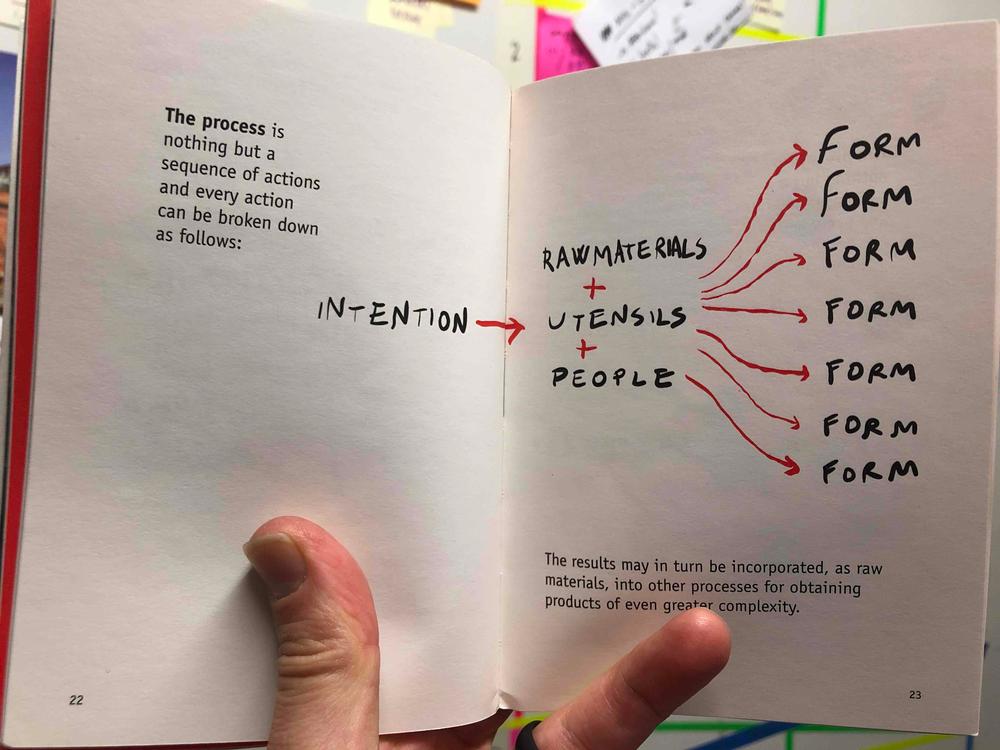 The process is
nothing but a
sequence of actions
and every action
can be broken down
as follows:
INTENTION
22
RAWMATERIALS
+
UTENSILS
+
PEOPLE
FORM
FORM
FORM
FORM
FORM
FORM
FORM
The results may in turn be incorporated, as raw
materials, into other processes for obtaining
products of even greater complexity.
23
2